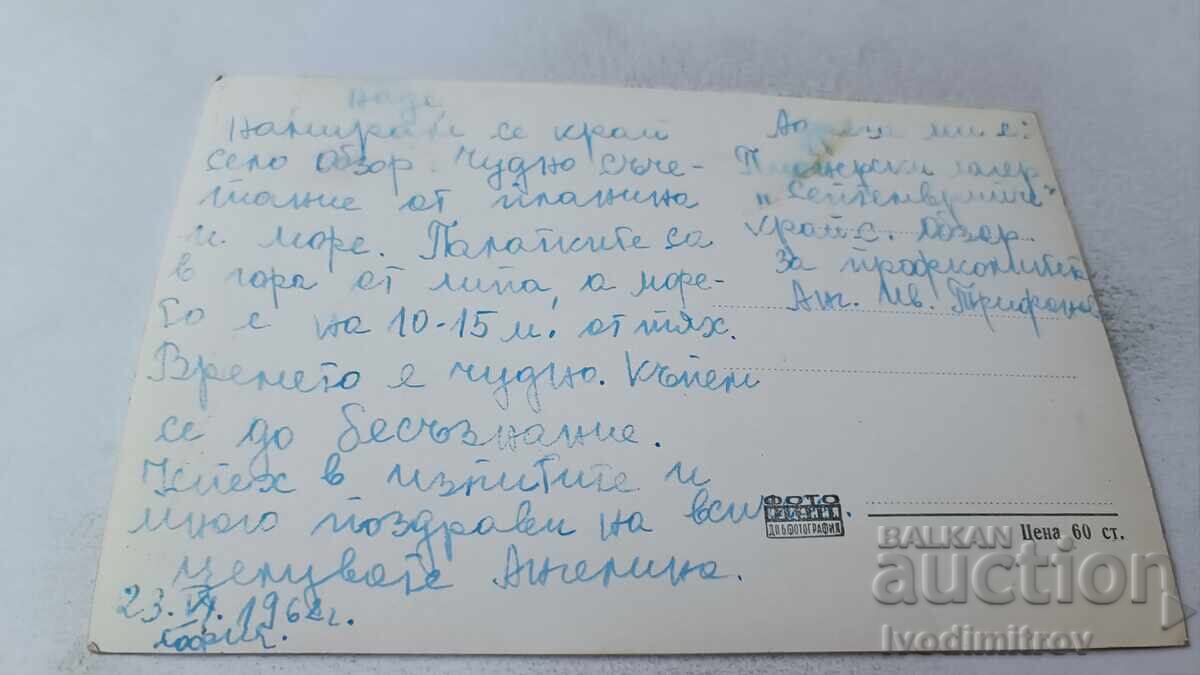 Намирам се край
село Обзор. Чудно съче-
тание от планина
и море. Палатките са
в гора от липа, а море-
то е на 10-15 м. от тях.
Времето е чудно. Къпем
се до безсъзнание.
Успех в изпитите и
много поздрави на всички.
целувате Ангелина.
23. VI. 1962 г.
София.
Адреса ми е:
Пионерски лагер
„Септемврийче"
край с. Обзор
За профкомитет
Анг. Ив. Трифонова
ФОТО
ДПК ФОТОГРАФИЯ
Цена 60 ст.
BALKAN
auction
Ivodimitrov